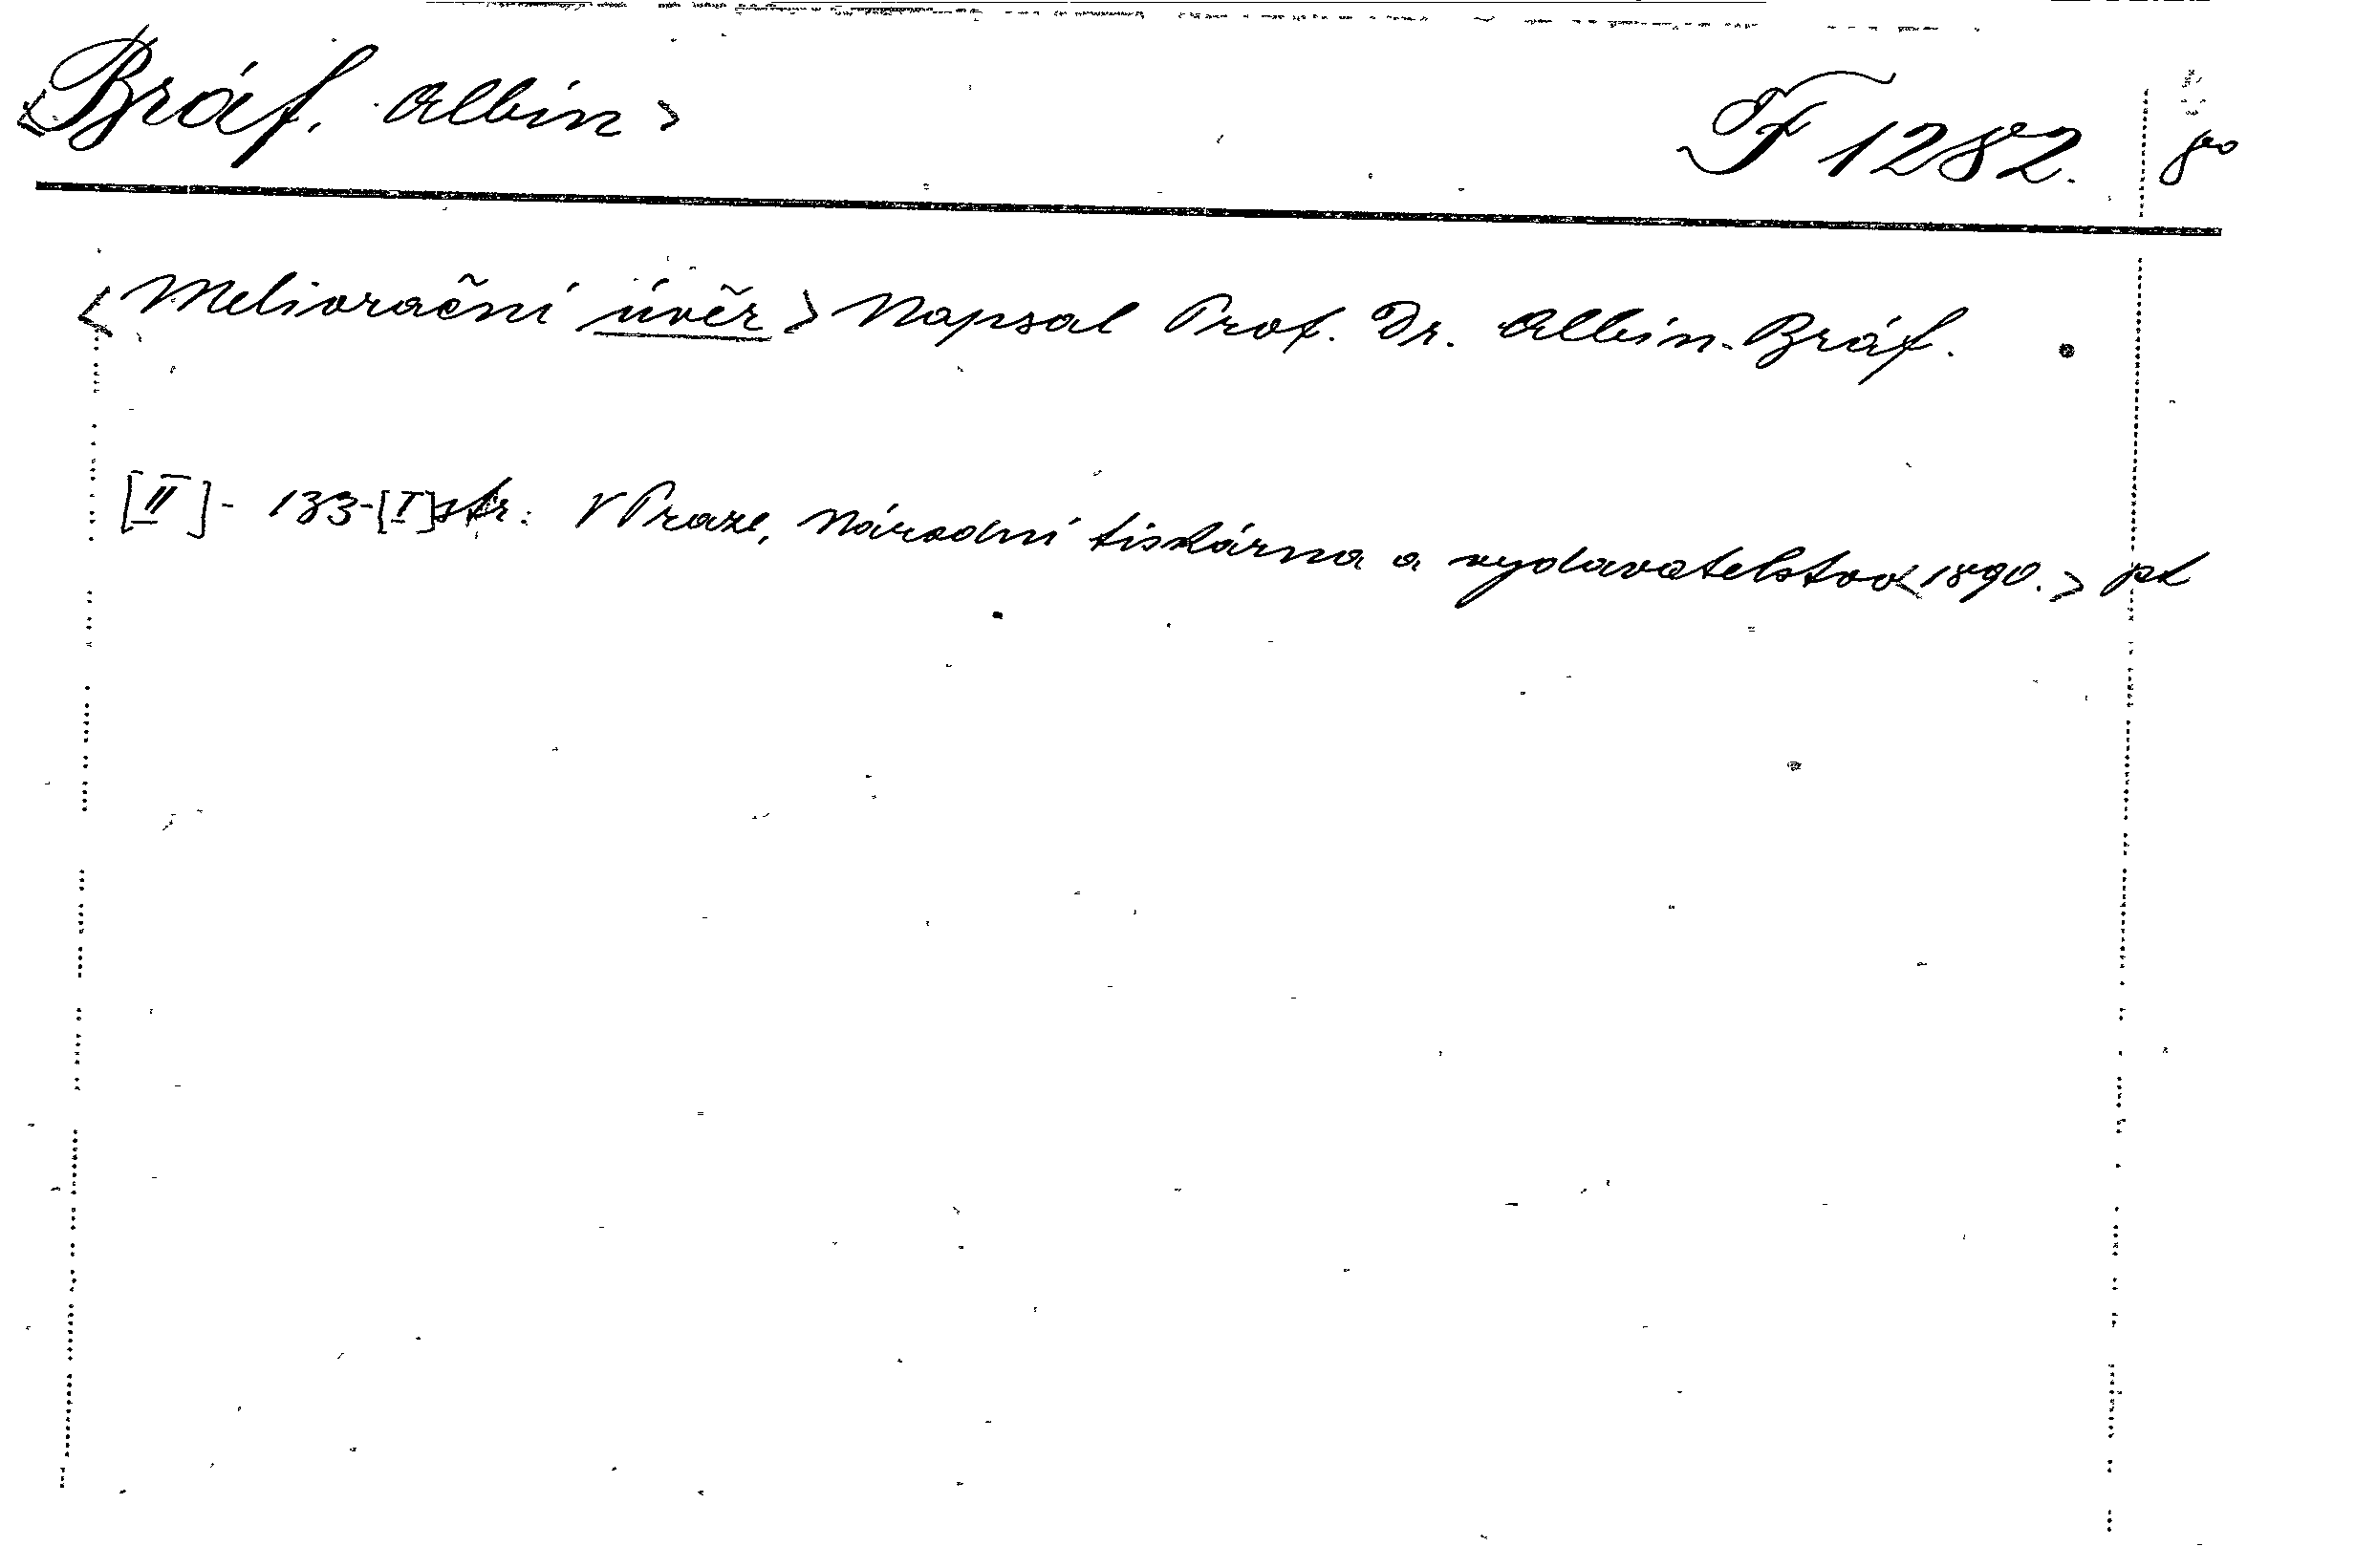 <Bráf. Albin> F 1282. 8o
<Meliorační úvěr> Napsal Prof. Dr. Albin Bráf.
[II]- 133-[I]str. V Praze, Národní tiskárna a vydavatelstvo <1890.>